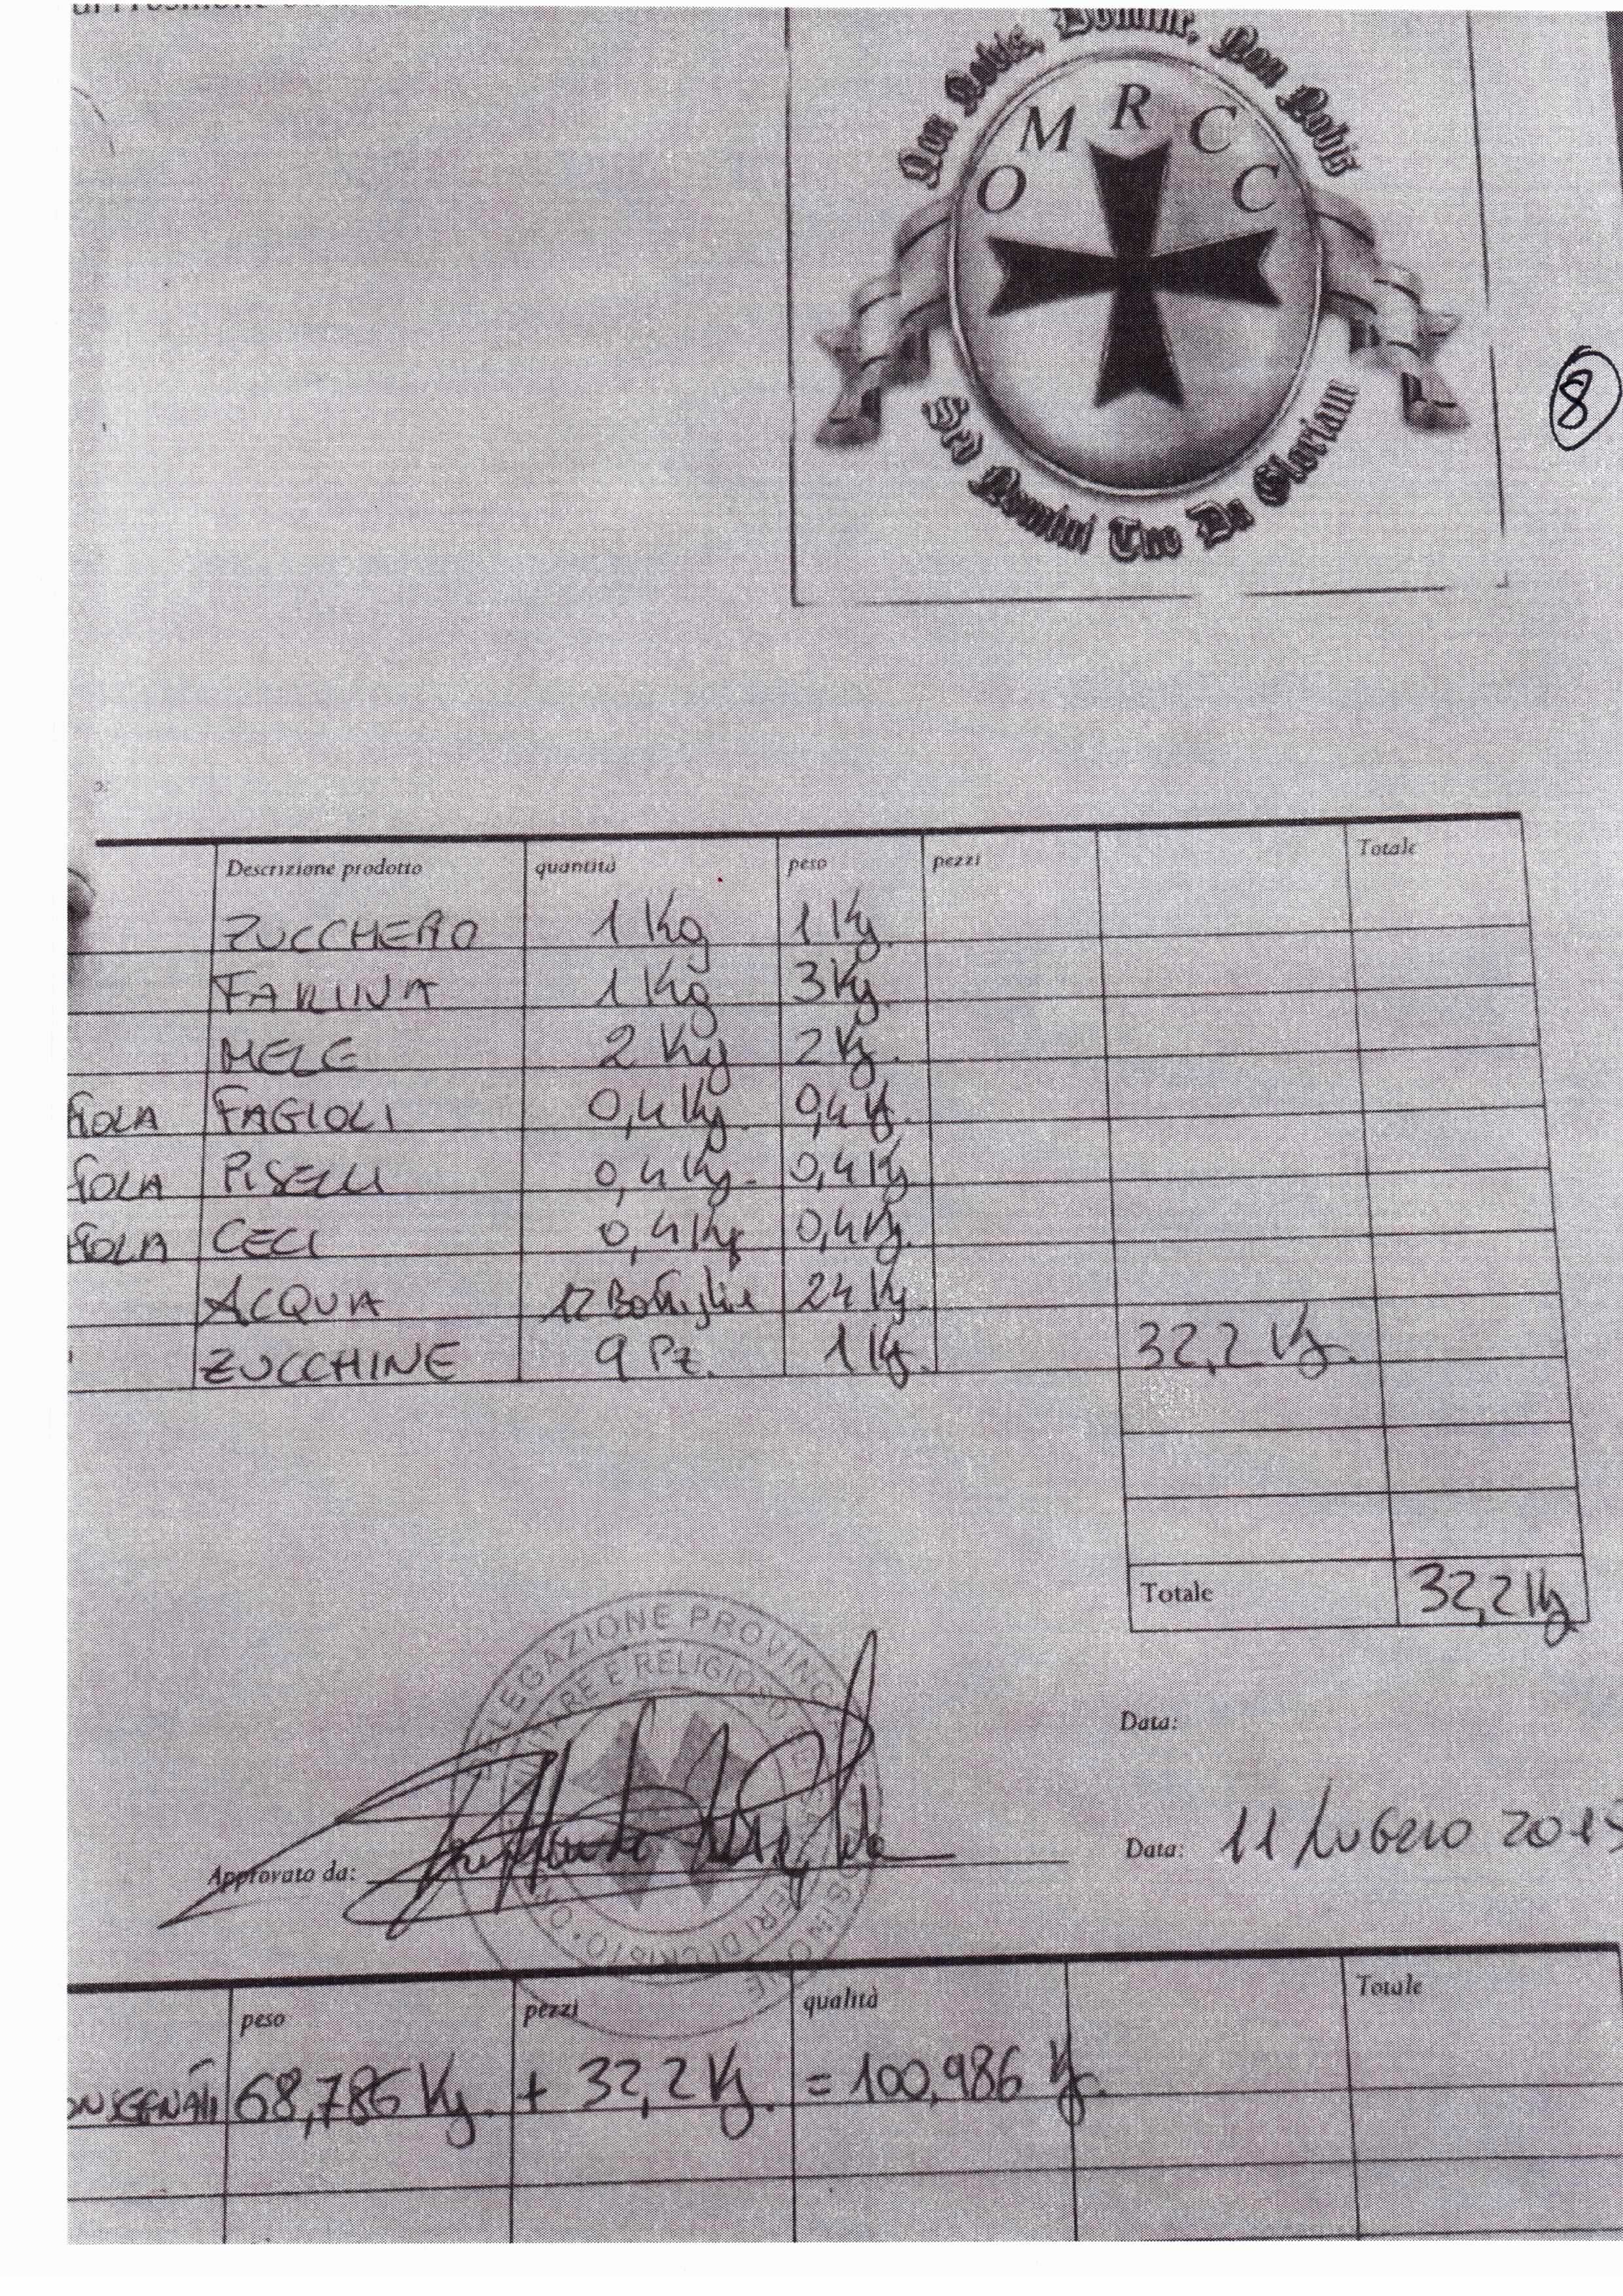 Non Nobis, Domine, Non Nobis
O M R C C
Sed Nomini Tuo Da Gloriam
8
Descrizione prodotto quantità peso pezzi Totale
ZUCCHERO 1 Kg 1 Kg.
FARINA 1 Kg 3 Kg.
MELE 2 Kg 2 Kg.
FAGIOLI 0,4 Kg. 0,4 Kg.
PISELLI 0,4 Kg. 0,4 Kg
CECI 0,4 Kg 0,4 Kg.
ACQUA 12 Bottiglie 24 Kg.
ZUCCHINE 9 Pz. 1 Kg. 32,2 Kg.
Totale 32,2 Kg
DELEGAZIONE PROVINC
MILITARE E RELIGIOSO
OSINONE
IERI DI CRISTO
Data:
Approvato da:
Data: 11 LUGLIO 201
peso pezzi qualità Totale
ONSEGNATI 68,786 Kg. + 32,2 Kg. = 100,986 Kg.